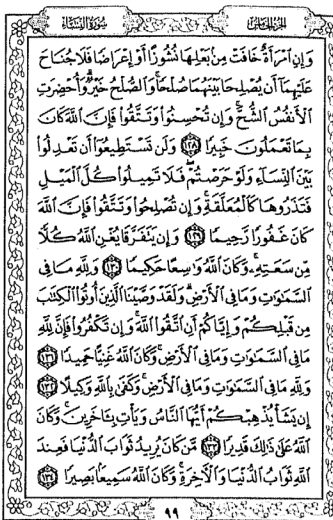 الجزء الخامس
سورة النساء
وَإِنِ ٱمْرَأَةٌ خَافَتْ مِنۢ بَعْلِهَا نُشُوزًا أَوْ إِعْرَاضًا فَلَا جُنَاحَ
عَلَيْهِمَآ أَن يُصْلِحَا بَيْنَهُمَا صُلْحًا وَٱلصُّلْحُ خَيْرٌ وَأُحْضِرَتِ
ٱلْأَنفُسُ ٱلشُّحَّ وَإِن تُحْسِنُوا۟ وَتَتَّقُوا۟ فَإِنَّ ٱللَّهَ كَانَ
بِمَا تَعْمَلُونَ خَبِيرًا ١٢٨ وَلَن تَسْتَطِيعُوٓا۟ أَن تَعْدِلُوا۟
بَيْنَ ٱلنِّسَآءِ وَلَوْ حَرَصْتُمْ فَلَا تَمِيلُوا۟ كُلَّ ٱلْمَيْلِ
فَتَذَرُوهَا كَٱلْمُعَلَّقَةِ وَإِن تُصْلِحُوا۟ وَتَتَّقُوا۟ فَإِنَّ ٱللَّهَ
كَانَ غَفُورًا رَّحِيمًا ١٢٩ وَإِن يَتَفَرَّقَا يُغْنِ ٱللَّهُ كُلًّا
مِّن سَعَتِهِۦ وَكَانَ ٱللَّهُ وَٰسِعًا حَكِيمًا ١٣٠ وَلِلَّهِ مَا فِى
ٱلسَّمَٰوَٰتِ وَمَا فِى ٱلْأَرْضِ وَلَقَدْ وَصَّيْنَا ٱلَّذِينَ أُوتُوا۟ ٱلْكِتَٰبَ
مِن قَبْلِكُمْ وَإِيَّاكُمْ أَنِ ٱتَّقُوا۟ ٱللَّهَ وَإِن تَكْفُرُوا۟ فَإِنَّ لِلَّهِ
مَا فِى ٱلسَّمَٰوَٰتِ وَمَا فِى ٱلْأَرْضِ وَكَانَ ٱللَّهُ غَنِيًّا حَمِيدًا ١٣١
وَلِلَّهِ مَا فِى ٱلسَّمَٰوَٰتِ وَمَا فِى ٱلْأَرْضِ وَكَفَىٰ بِٱللَّهِ وَكِيلًا ١٣٢
إِن يَشَأْ يُذْهِبْكُمْ أَيُّهَا ٱلنَّاسُ وَيَأْتِ بِـَٔاخَرِينَ وَكَانَ
ٱللَّهُ عَلَىٰ ذَٰلِكَ قَدِيرًا ١٣٣ مَّن كَانَ يُرِيدُ ثَوَابَ ٱلدُّنْيَا فَعِندَ
ٱللَّهِ ثَوَابُ ٱلدُّنْيَا وَٱلْءَاخِرَةِ وَكَانَ ٱللَّهُ سَمِيعًۢا بَصِيرًا ١٣٤
٩٩